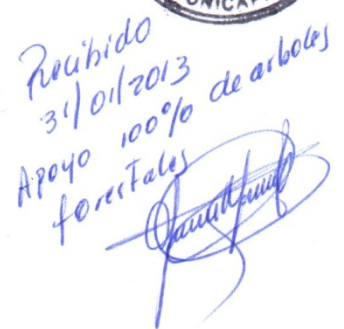 Recibido
31/01/2013
Apoyo 100% de arboles
forestales